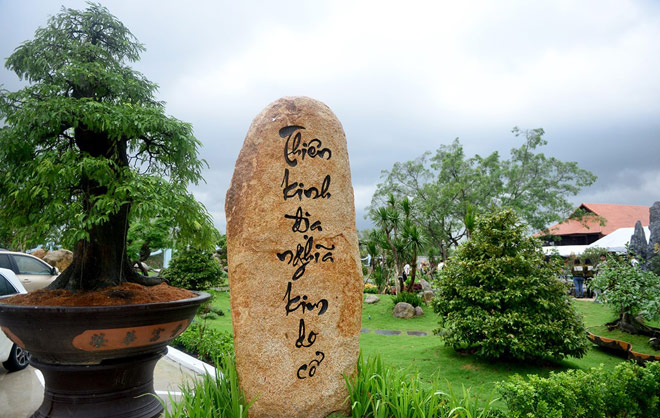 Thiên
kinh
địa
nghĩa
kim
do
cổ